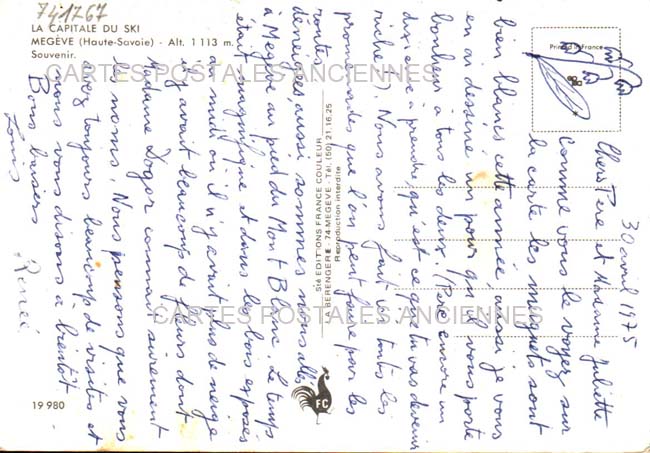 741767
LA CAPITALE DU SKI
MEGÈVE (Haute-Savoie) - Alt. 1 113 m.
Souvenir.
Printed in France
CARTES POSTALES ANCIENNES
CARTES POSTALES ANCIENNES
30 avril 1975
Chers Père et Madame Juliette
Comme vous le voyez sur
la carte les muguets sont
bien blancs cette année, aussi je vous
en ai dessiné un pour qu'il vous porte
bonheur à tous les deux. (Père encore un
à prendre, qu'est ce que tu vas devenir
riche!!). Nous avons fait ici toutes les
promenades que l'on peut faire par les
routes
déneigées, aussi sommes nous allés
à Megève au pied du Mont Blanc. Le temps
était magnifique et dans les bois exposés
au midi où il n'y avait plus de neige
il y avait beaucoup de fleurs dont
Madame Dogor connait sûrement
les noms. Nous pensons que vous
avez toujours beaucoup de visites et
nous vous disons à bientôt
Bons baisers
Louis
Renée
Sté EDITIONS FRANCE COULEUR
LA BERENGERE. 74-MEGEVE - Tél. (50) 21.16.25
Reproduction interdite
FC
19 980